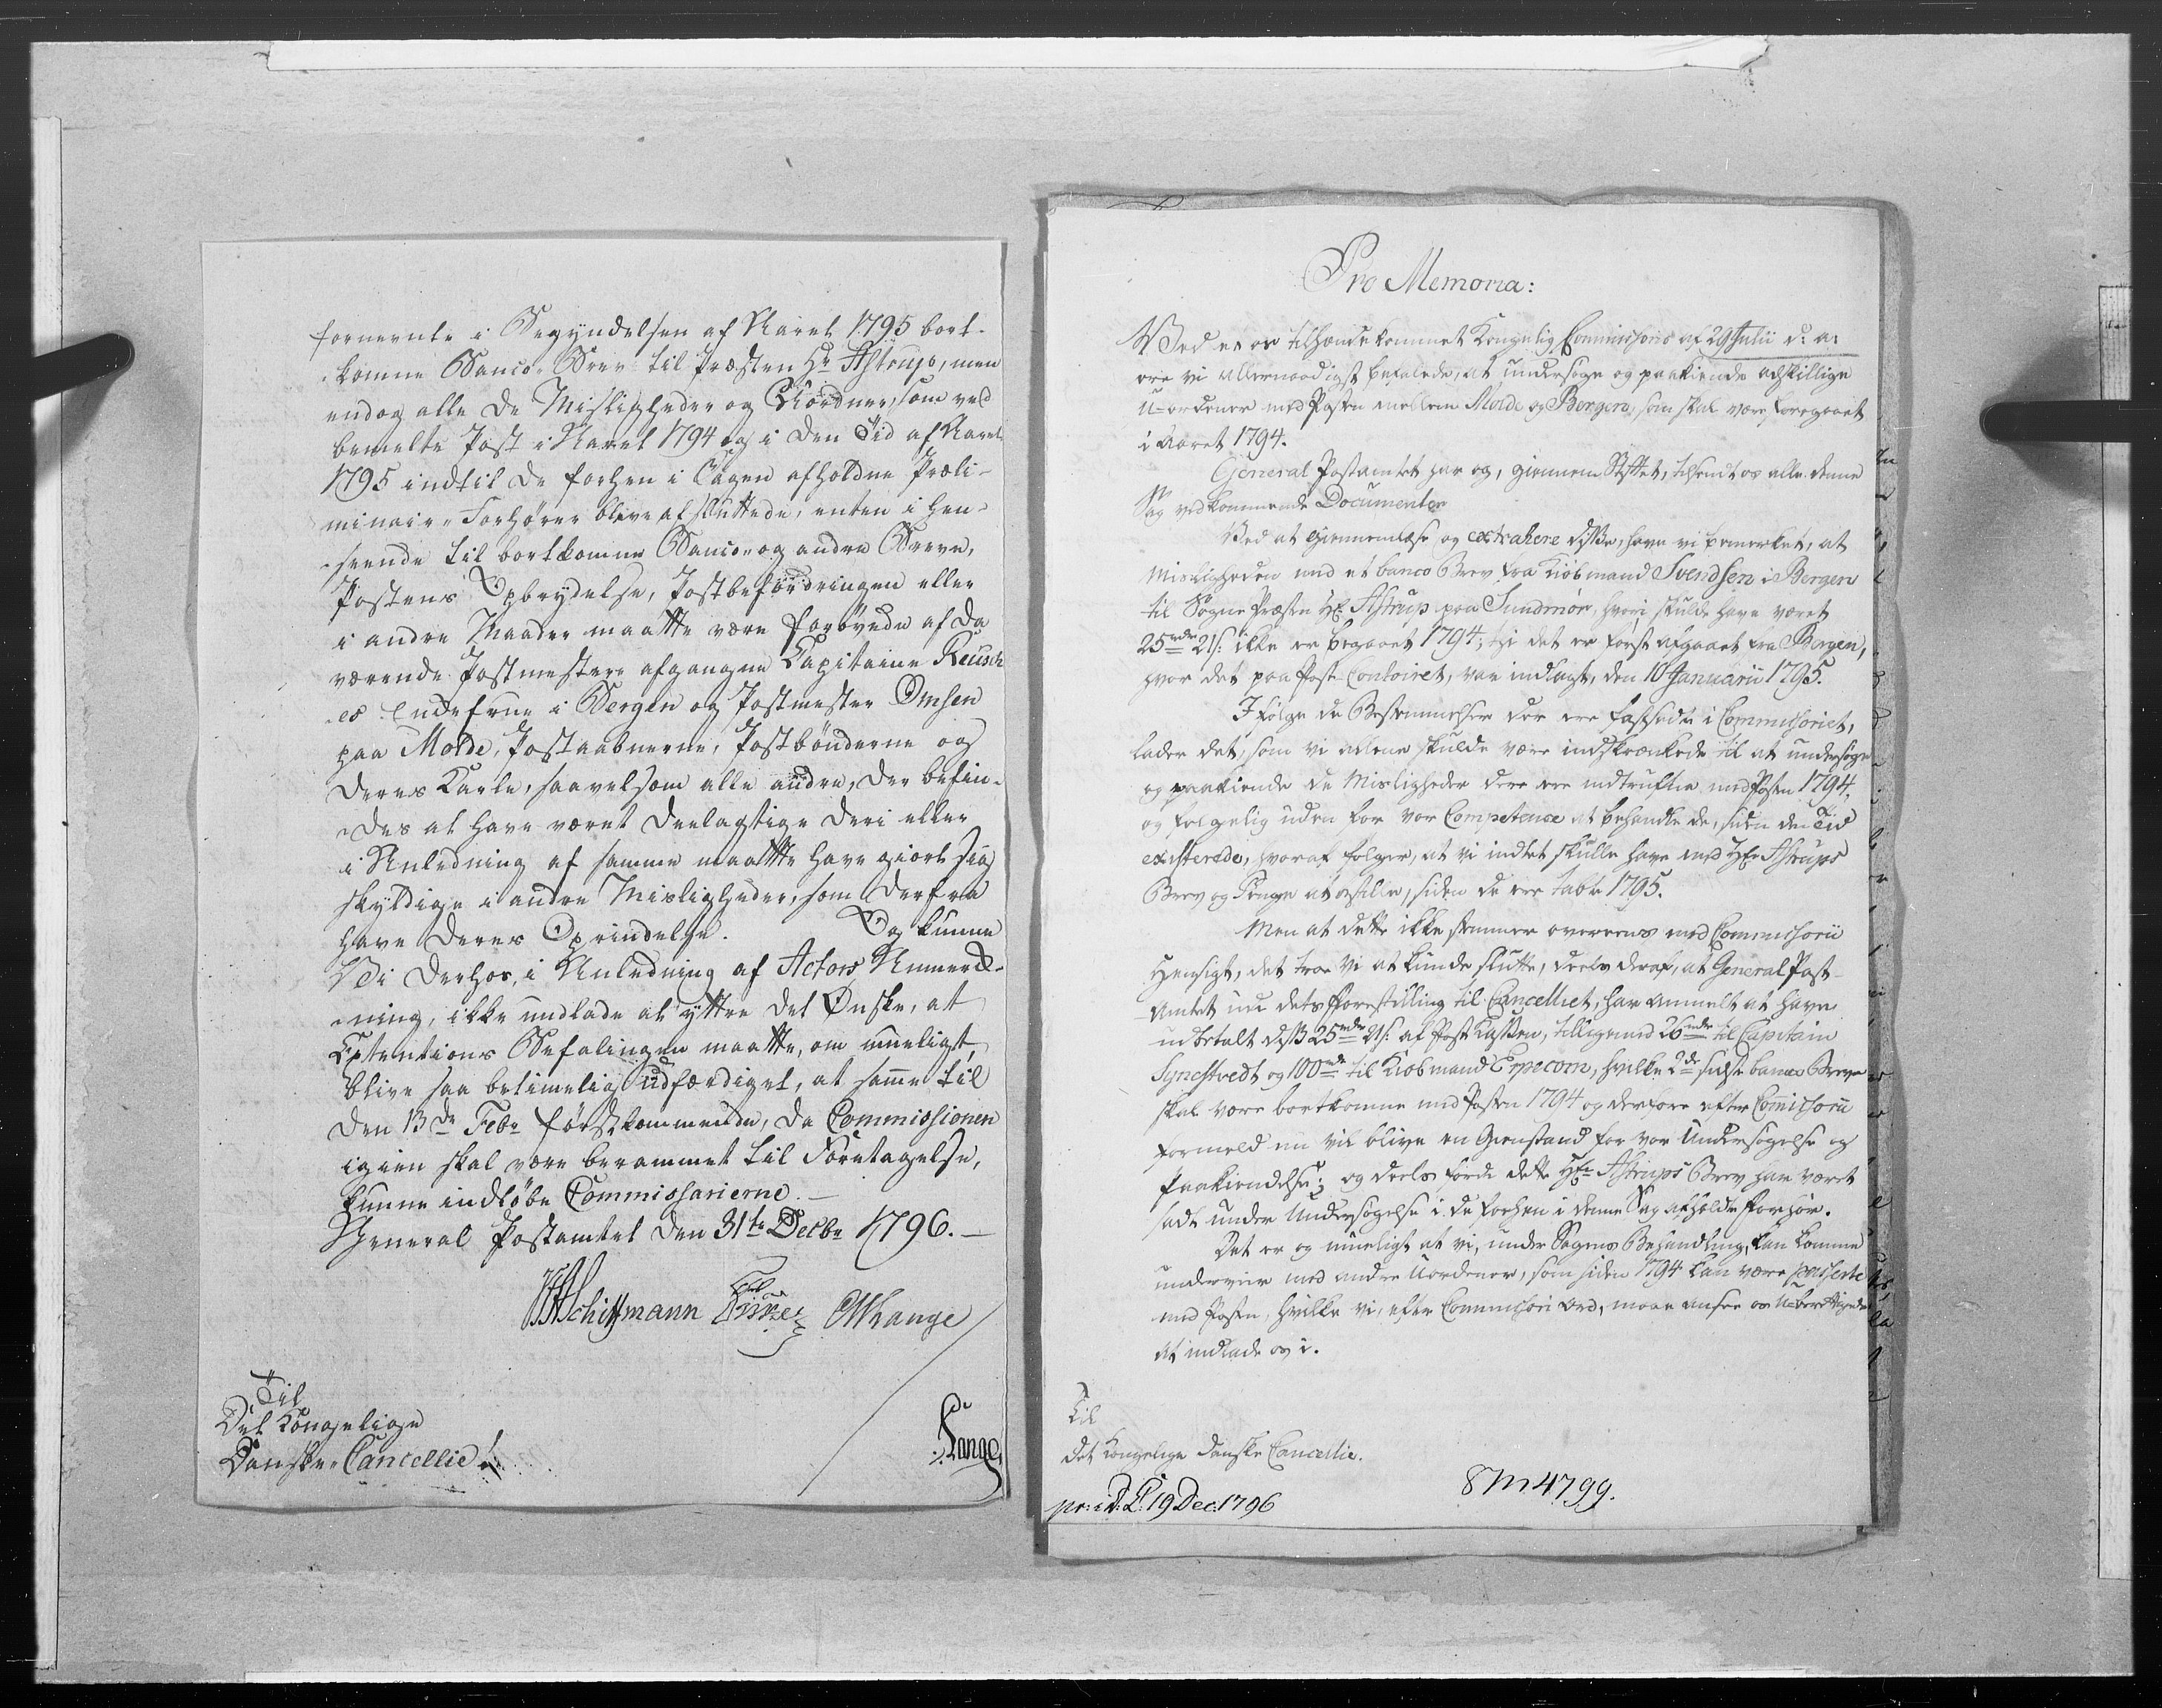 fornevnte i Begyndelsen af Aaret 1795 bort-
komne Banco-Brev til Præsten Hr Astrup, men
endog alle de Misligheder og Uordner, som ved
bemelte Post i Aaret 1794 og i den Tid af Aaret
1795 indtil de forhen i Sagen afholdne Præli-
minair-Forhører blive afsluttede, enten i Hen-
seende til bortkomne Banco- og andre Breve,
Postens Opbrydelse, Postbefordringen eller
i andre Maader maatte være forøvede af da
værende Postmestere afgangne Capitaine Reusch
es Enkefrue i Bergen og Postmester Omsen
paa Molde, Postaabnerne, Postbønderne og
deres Karle, saavelsom alle andre, der befin-
des at have været deelagtige deri eller
i Anledning af samme maatte have giort sig
skyldige i andre Misligheder, som derfra
have deres Oprindelse. Og kunne
Vi derhos, i Anledning af Actors Anmerk-
ning, ikke undlade at yttre det Ønske, at
Extentions Befalingen maatte, om mueligt,
blive saa betimelig udfærdiget, at samme til
den 13de Febr førstkommende, da Commissionen
igien skal være berammet til Foretagelse,
kunne indløbe Commissarierne.
General Postamtet den 31te Decbr 1796.
Schiffmann Lange
Til
Det Kongelige
Danske Cancellie
Lange
Pro Memoria:
Ved et os tilhændekommet Kongelig Commissorio af 29 Julii d: a:
ere vi allernaadigst befalede, at undersøge og paakiende adskillige
U-ordener med Posten mellem Molde og Bergen, som skal være foregaaet
i Aaret 1794.
General Postamtet har og, giennem Stiftet, tilsendt os alle denne
Sag vedkommende Documenter
Ved at giennemlæse og extrahere disse, have vi bemerket, at
Misligheden med et banco Brev fra Kiøbmand Svendsen i Bergen
til Sogne Præsten Hr Astrup paa Sundmør, hvori skulde have været
25 rdr 21 s: ikke er begaaet 1794; thi det er først afgaaet fra Bergen,
hvor det paa Post-Contoiret, var indlagt, den 10 Januarii 1795.
I følge de Bestemmelser der ere fastsadte i Commissoriet,
lader det, som vi allene skulde være indskrænkede til at undersøge
og paakiende de Misligheder dere ere indtrufne med Posten 1794.
og følgelig uden for vor Competence at behandle de, siden den Tid
existerede, hvoraf følger, at vi indtet skulle have med Hr Astrups
Brev og Penge at bestille, siden de ere tabte 1795.
Men at dette ikke stemmer overeens med Commissorii
Hensigt, det troe Vi at kunde slutte, deels deraf, at General Post-
Amtet udi dets Forestilling til Cancelliet, har anmelt at have
udbetalt disse 25 rdr 21 s: af Post Kassen, tilligemed 26 rdr til Capitain
Synestvedt og 100 rdr til Kiøbmand Epecorn, hvilke 2de sidste banco Breve
skal være bortkomne med Posten 1794 og derfore efter Comissorii
formeld en vil blive en Gienstand for vor Undersøgelse og
Paakiendelse; og deels fordi dette Hr Astrups Brev har været
sadt under Undersøgelse i de forhen i denne Sag afholdte Forhør.
Det er og mueligt at vi, under Sagens Behandling, kan komme
underveir med andre Uordener, som siden 1794 kan være passerte
med Posten, hvilke vi, efter Commissorii ord, maae ansee os U-berettigede
at indlade os i.
Til
det Kongelige danske Cancellie.
pr: i D: C: 19 Dec: 1796
8 m 4799.